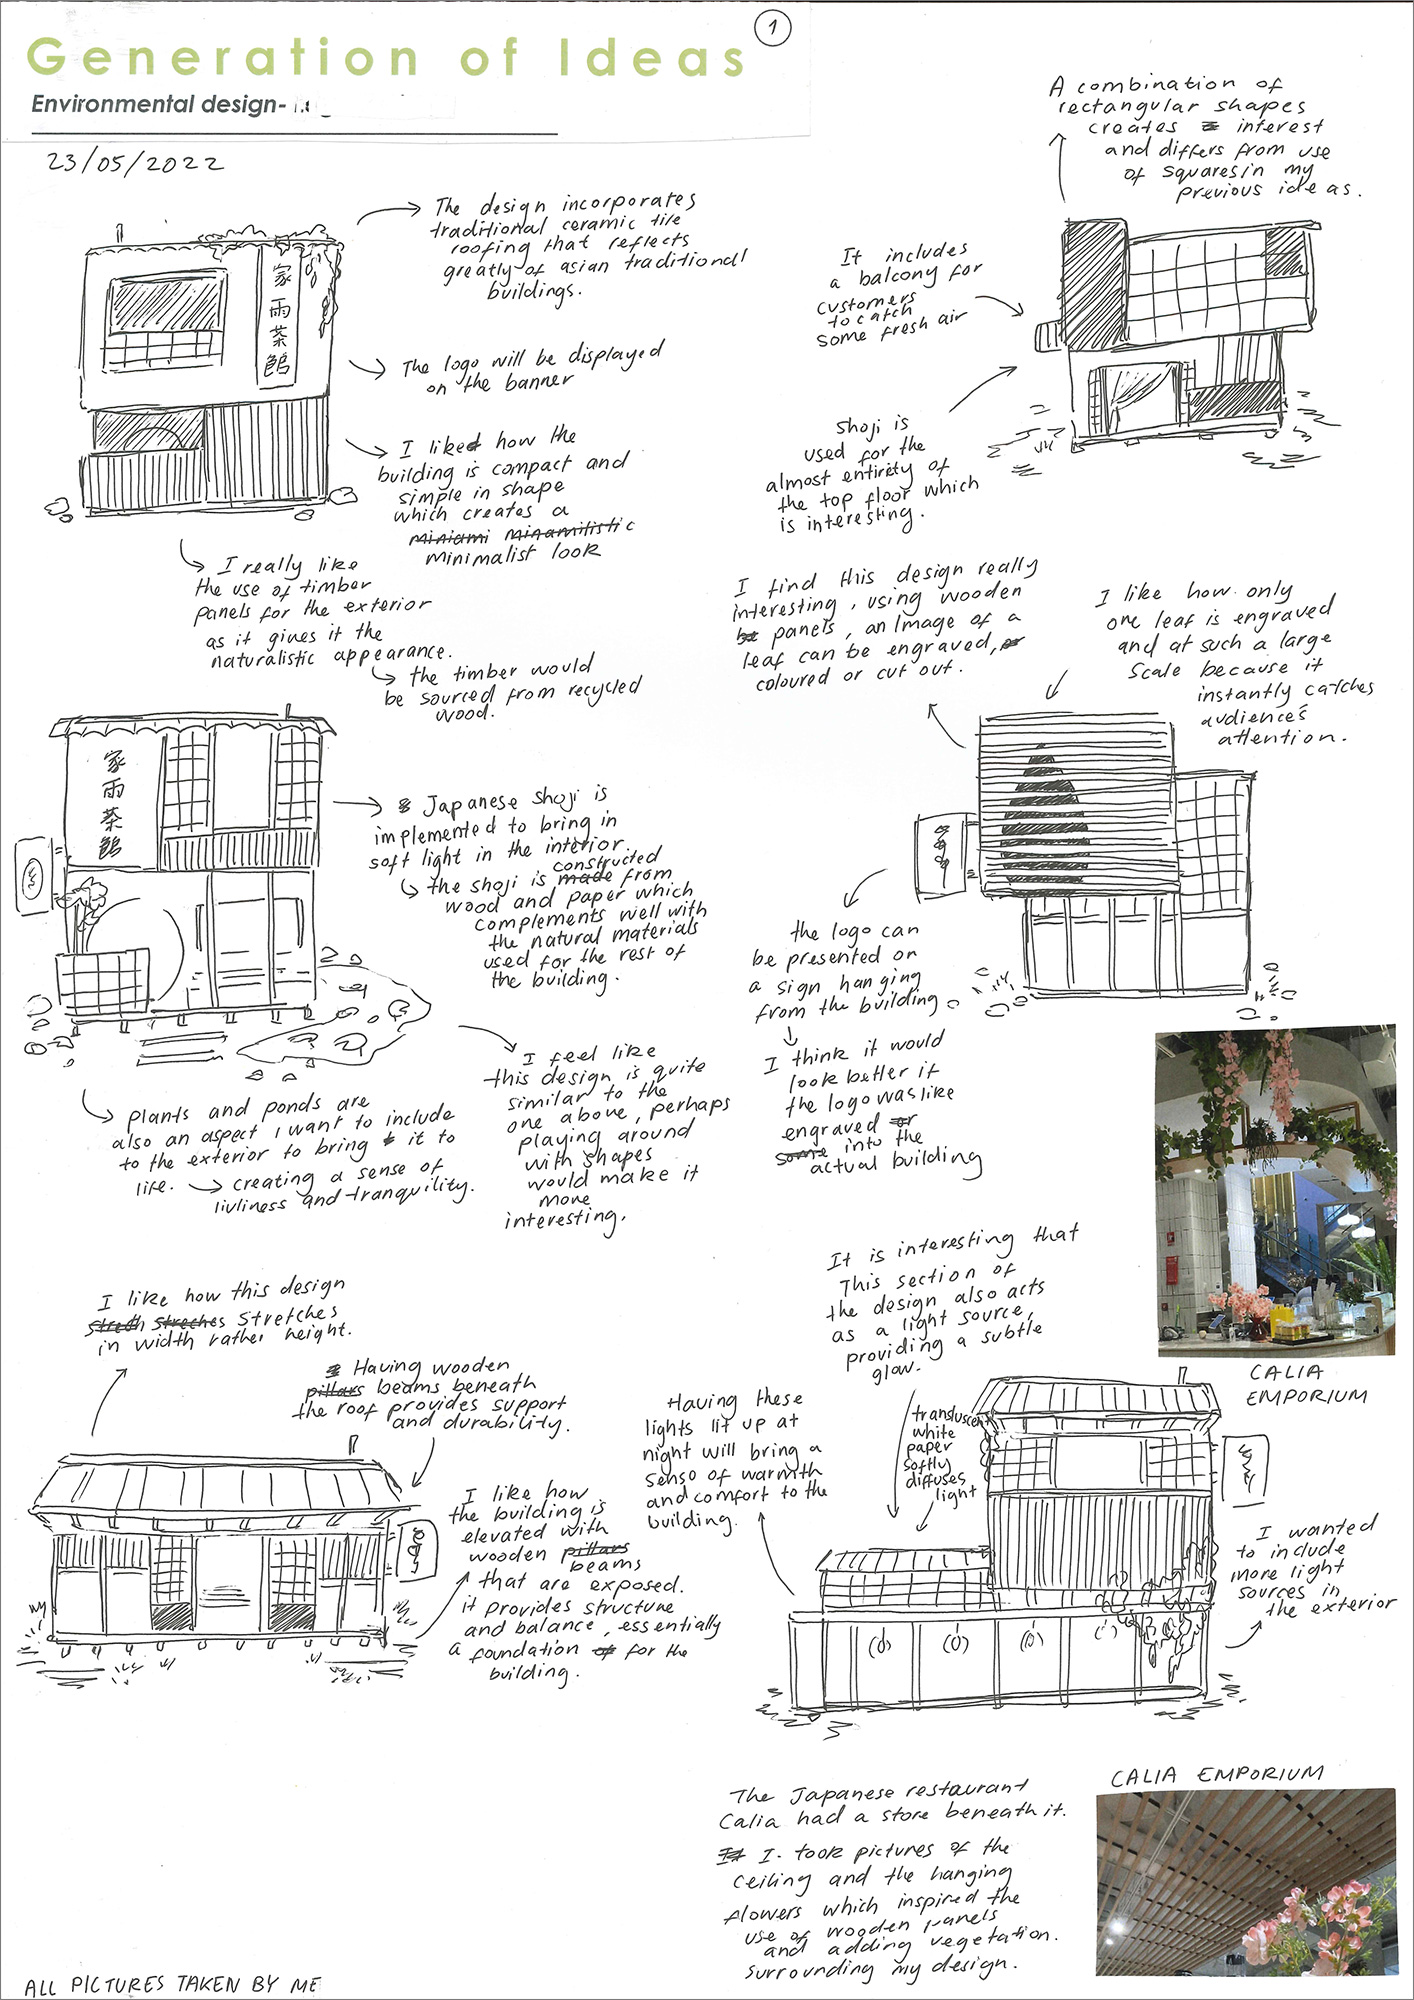 1
Generation of Ideas
Environmental design-
23/05/2022
The design incorporates
traditional ceramic tile
roofing that reflects
greatly of asian traditional
buildings.
家
雨
茶
館
The logo will be displayed
on the banner
I liked how the
building is compact and
simple in shape
which creates a
miniami minamilistic
minimalist look
I really like
the use of timber
panels for the exterior
as it gives it the
naturalistic appearance.
the timber would
be sourced from recycled
wood.
家
雨
茶
館
Japanese shoji is
implemented to bring in
soft light in the interior.
constructed
the shoji is made from
wood and paper which
complements well with
the natural materials
used for the rest of
the building.
I feel like
this design is quite
similar to the
one above, perhaps
playing around
with shapes
would make it
more
interesting.
plants and ponds are
also an aspect I want to include
to the exterior to bring it to
life. creating a sense of
livliness and tranquility.
I like how this design
stretch streches stretches
in width rather height.
Having wooden
pillars beams beneath
the roof provides support
and durability.
I like how
the building is
elevated with
wooden pillars
beams
that are exposed.
it provides structure
and balance, essentially
a foundation of for the
building.
A combination of
rectangular shapes
creates interest
and differs from use
of squares in my
previous ideas.
It includes
a balcony for
customers
to catch
some fresh air
Shoji is
used for the
almost entirety of
the top floor which
is interesting.
I find this design really
interesting, using wooden
be panels, an image of a
leaf can be engraved, or
coloured or cut out.
I like how only
one leaf is engraved
and at such a large
scale because it
instantly catches
audience's
attention.
the logo can
be presented on
a sign hanging
from the building
I think it would
look better if
the logo was like
engraved or
some into the
actual building
CALIA
EMPORIUM
It is interesting that
This section of
the design also acts
as a light source,
providing a subtle
glow.
transluscent
white
paper
softly
diffuses
light
Having these
lights lit up at
night will bring a
sense of warmth
and comfort to the
building.
I wanted
to include
more light
sources in
the exterior
CALIA EMPORIUM
The Japanese restaurant
Calia had a store beneath it.
It I took pictures of the
ceiling and the hanging
flowers which inspired the
use of wooden panels
and adding vegetation.
surrounding my design.
ALL PICTURES TAKEN BY ME